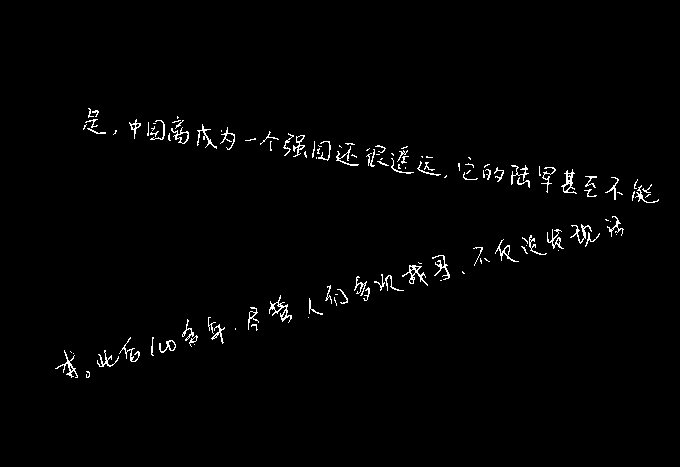 是，中国离成为一个强国还很遥远，它的陆军甚至不能
本。此后100多年，尽管人们多次找寻，不仅没发现该